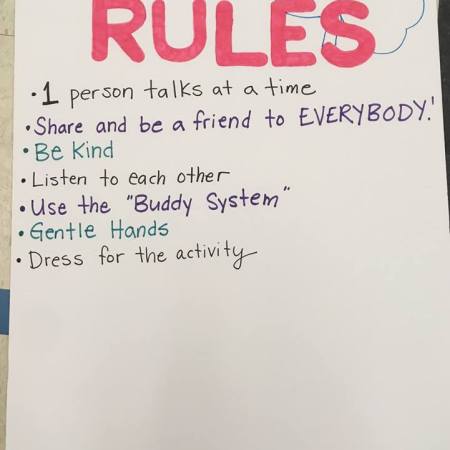 RULES
• 1 person talks at a time
• Share and be a friend to EVERYBODY!
• Be Kind
• Listen to each other
• Use the "Buddy System"
• Gentle Hands
• Dress for the activity